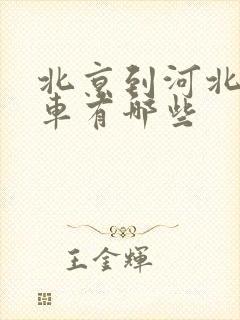 北京到河北
車有哪些
王金輝